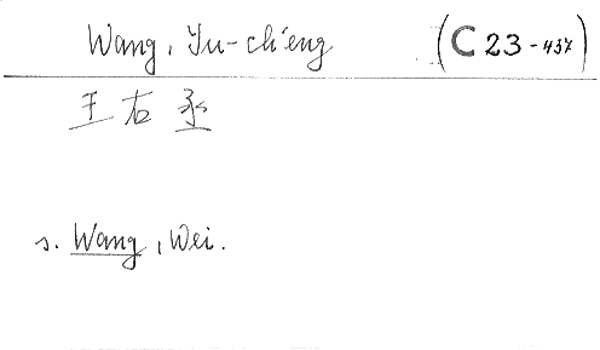 Wang, Yu-ch'eng (C 23-437)
王右丞
s. Wang, Wei.